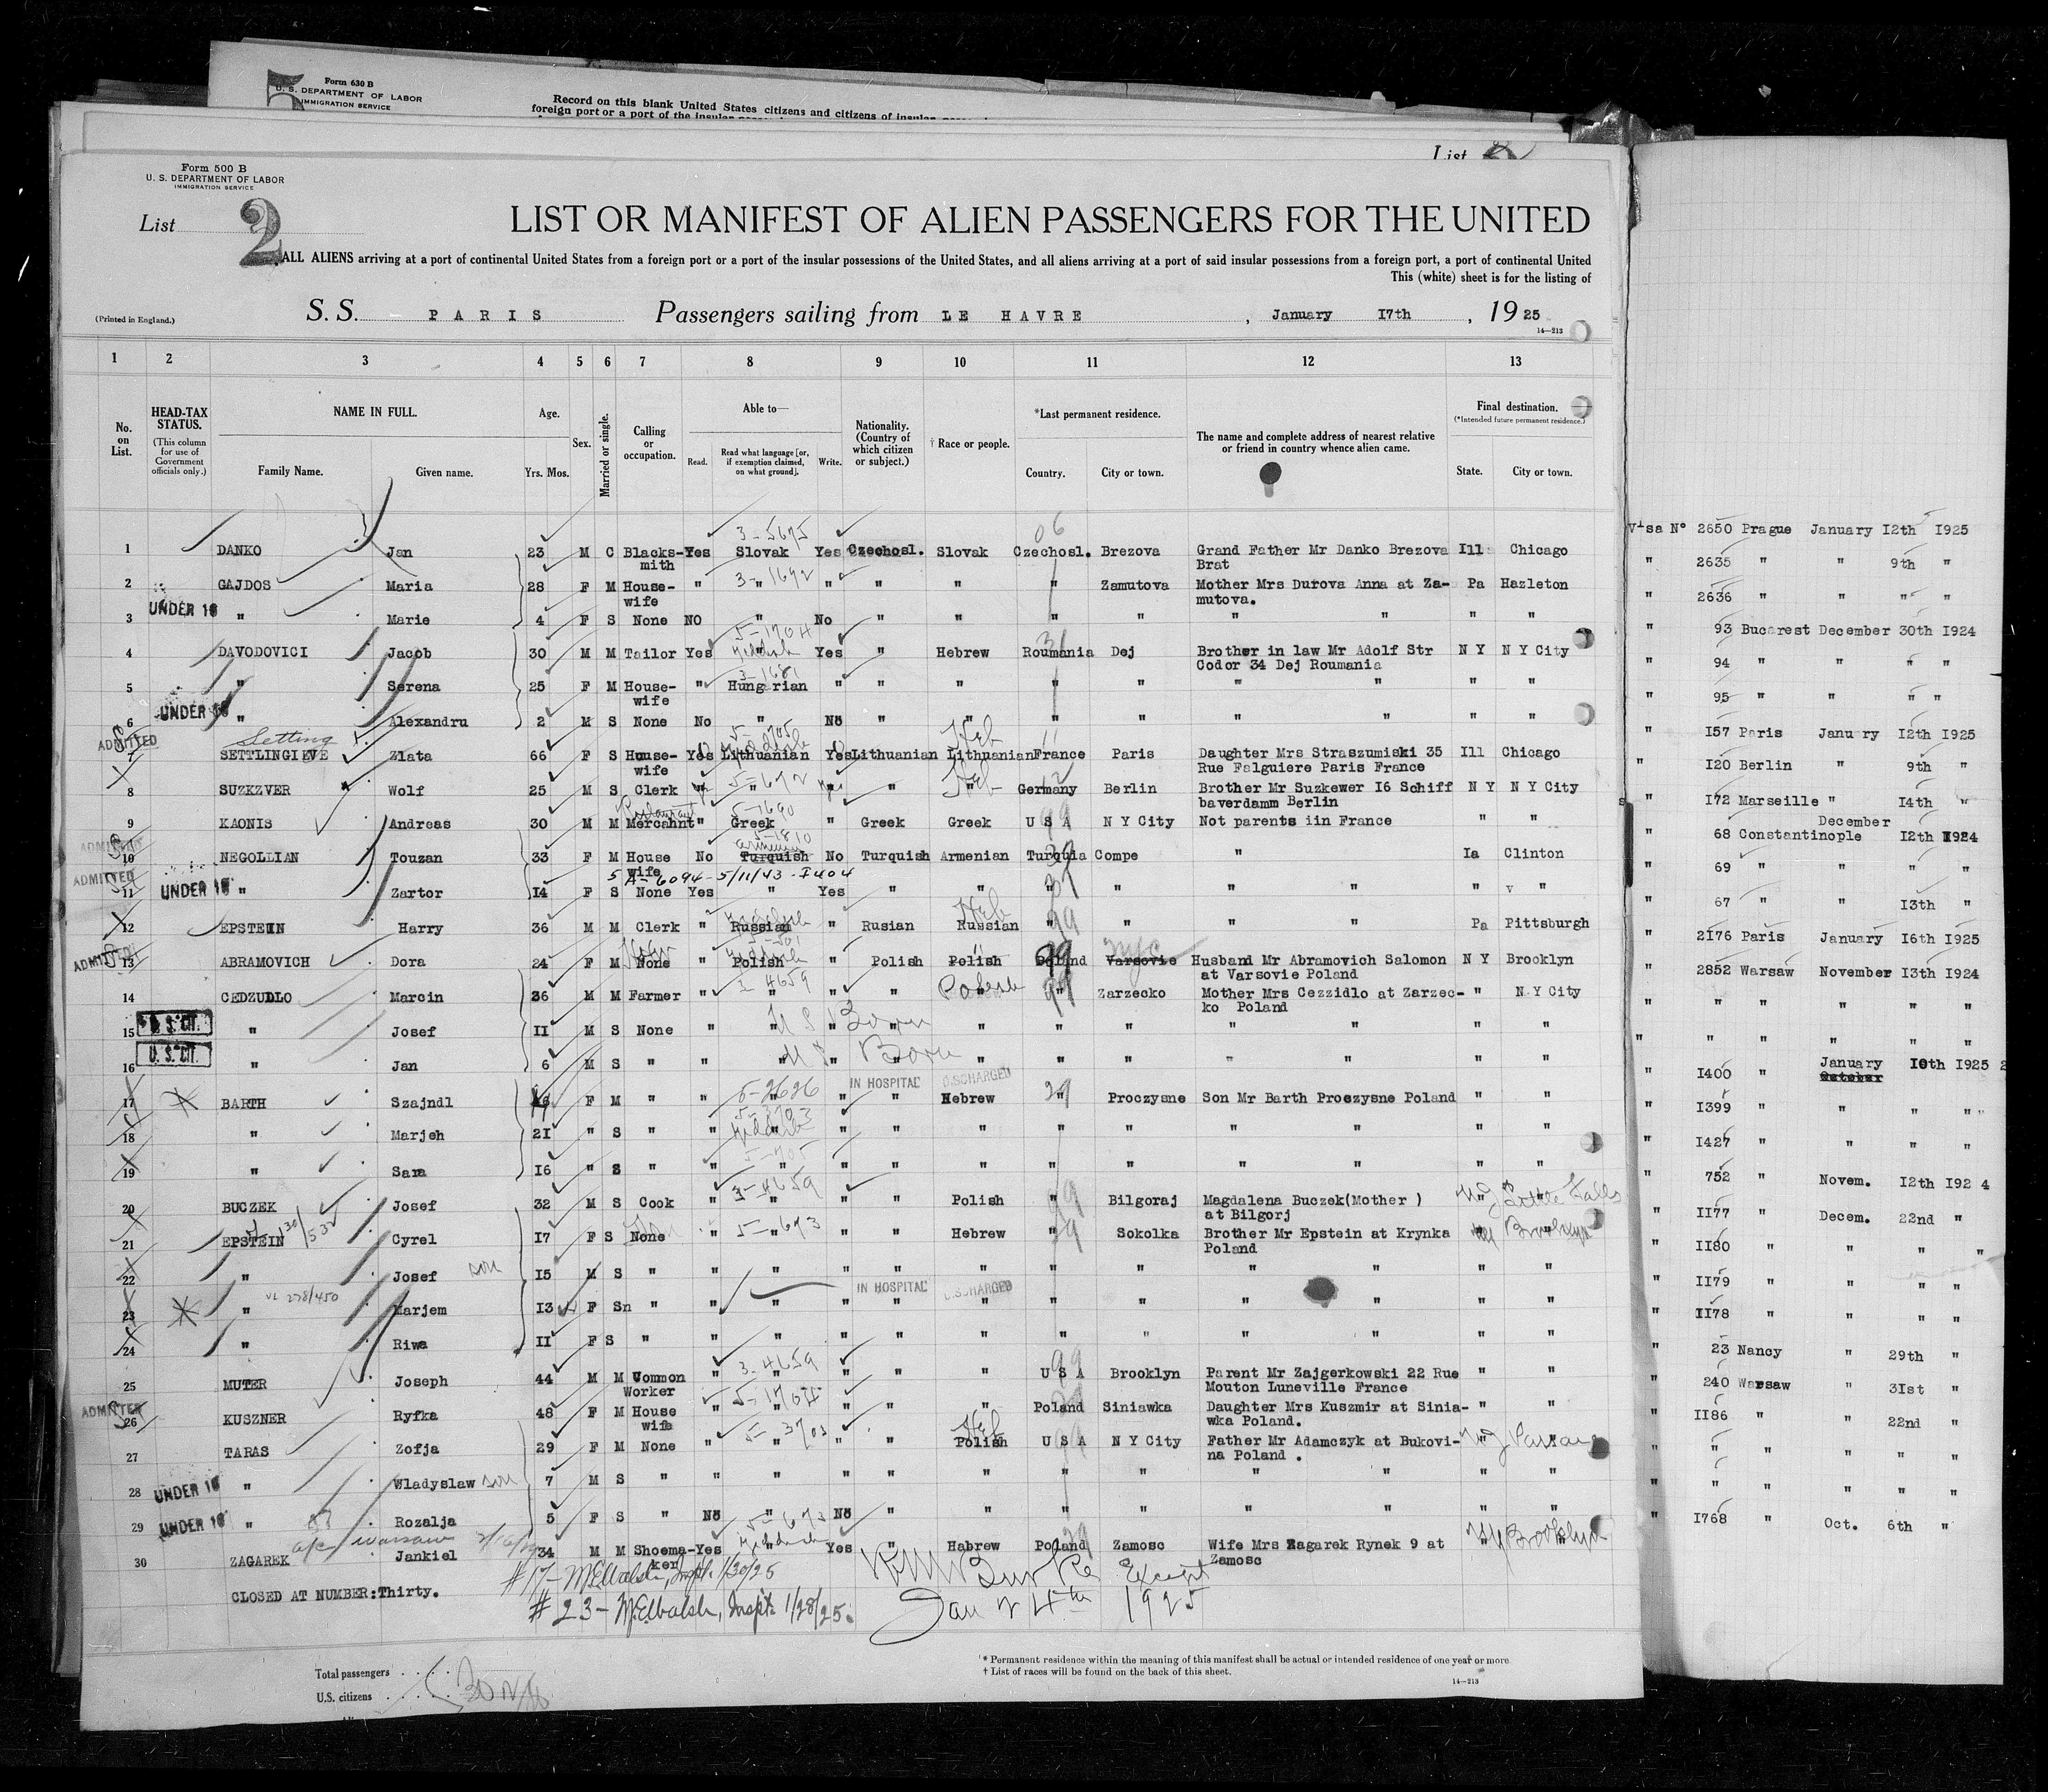 Form 630 B
U. S. DEPARTMENT OF LABOR
IMMIGRATION SERVICE
Record on this blank United States citizens and citizens of insular
foreign port or a port of the insular
List
Form 500 B
U. S. DEPARTMENT OF LABOR
IMMIGRATION SERVICE
List 2
LIST OR MANIFEST OF ALIEN PASSENGERS FOR THE UNITED
ALL ALIENS arriving at a port of continental United States from a foreign port or a port of the insular possessions of the United States, and all aliens arriving at a port of said insular possessions from a foreign port, a port of continental United
This (white) sheet is for the listing of
(Printed in England.)
S. S. PARIS Passengers sailing from LE HAVRE, January I7th, 1925
14—213
1 2 3 4 5 6 7 8 9 10 11 12 13
No. on List.
HEAD-TAX STATUS. (This column for use of Government officials only.)
NAME IN FULL. Family Name. Given name.
Age. Yrs. Mos.
Sex.
Married or single.
Calling or occupation.
Able to— Read. Read what language [or, if exemption claimed, on what ground]. Write.
Nationality. (Country of which citizen or subject.)
† Race or people.
*Last permanent residence. Country. City or town.
The name and complete address of nearest relative or friend in country whence alien came.
Final destination. (*Intended future permanent residence.) State. City or town.
06
3-5675
1 DANKO Jan 23 M C Blacks- Yes Slovak Yes Czechosl. Slovak Czechosl. Brezova Grand Father Mr Danko Brezova Ill Chicago
mith Brat
3-1692
2 GAJDOS Maria 28 F M House- " " " " " " Zamutova Mother Mrs Durova Anna at Za- Pa Hazleton
wife mutova.
UNDER 16
3 " Marie 4 F S None NO " No " " " " " " " "
5-1704
4 DAVODOVICI Jacob 30 M M Tailor Yes " Yiddish Yes " Hebrew Roumania Dej Brother in law Mr Adolf Str N Y N Y City
Codor 34 Dej Roumania
3-1681
5 " Serena 25 F M House- " Hungrian " " " " " " " " "
wife
UNDER 16
6 " Alexandru 2 M S None No " No " " " " " " " "
ADMITTED Setting 5-1705 Yiddish Heb
7 SETTLINGIEVE Zlata 66 F S House- Yes Lithuanian Yes Lithuanian Lithuanian France Paris Daughter Mrs Straszumiski 35 Ill Chicago
wife Rue Falguiere Paris France
5-692 Heb
8 SUZKZVER Wolf 25 M S Clerk " " " " " Germany Berlin Brother Mr Suzkewer I6 Schiff N Y N Y City
baverdamm Berlin
Restaurant 5-1690
9 KAONIS Andreas 30 M M Mercahnt " Greek " Greek Greek U S A N Y City Not parents iin France " "
ADMITTED 5-1810
10 NEGOLLIAN Touzan 33 F M House No Turquish No Turquish Armenian Turquia Compe " Ia Clinton
wife
5 A-6094-5/11/43-I404
ADMITTED UNDER 16
11 " Zartor I4 F S None Yes " Yes " " " " " " " v "
Yiddish Heb 99
12 EPSTEIN Harry 36 M M Clerk " Russian " Rusian Russian " " " " Pa Pittsburgh
ADMITTED 5-501 Yiddish NYC
13 ABRAMOVICH Dora 24 F M None " Polish " Polish Polish Poland Varsovie Husband Mr Abramovich Salomon N Y Brooklyn
at Varsovie Poland
3 4659 Polish
14 CEDZUDLO Marcin 36 M M Farmer " " " " " " Zarzecko Mother Mrs Cezzidlo at Zarzec- " N Y City
ko Poland
U. S. CIT. U S Born
15 " Josef II M S None " " " " " " " " " " "
U. S. CIT. U S Born
16 " Jan 6 M S " " " " " " " " " " " "
5-2626 IN HOSPITAL DISCHARGED
17 BARTH Szajndl F M " " " " " Hebrew " Proczysne Son Mr Barth Proczysne Poland " "
5-3703 Yiddish
18 " Marjeh 2I " S " " " " " " " " " " " "
5-705
19 " Sara I6 " S " " " " " " " " " " " "
3-4659
20 BUCZEK Josef 32 M S Cook " " " " Polish " Bilgoraj Magdalena Buczek(Mother ) NJ Little Falls
at Bilgorj
5-673
21 EPSTEIN Cyrel I7 F S None " " " " Hebrew " Sokolka Brother Mr Epstein at Krynka NY Brooklyn
Poland
22 " Josef son I5 M S " " " " " " " " " " " "
VL 278/450 IN HOSPITAL DISCHARGED
23 " Marjem I3 F Sn " " " " " " " " " " "
24 " Riwa II F S " " " " " " " " " " " "
3-4659 99
25 MUTER Joseph 44 M M Common " " " " " U S A Brooklyn Parent Mr Zajgerkowski 22 Rue " "
Worker Mouton Luneville France
ADMITTED 5-1704
26 KUSZNER Ryfka 48 F M House " " " " " Poland Siniawka Daughter Mrs Kuszmir at Sinia- " "
wife wka Poland.
5-3703 Heb
27 TARAS Zofja 29 F M None " " " " Polish U S A N Y City Father Mr Adamczyk at Bukovi- NJ Passaic
na Poland .
UNDER 16
28 " Wladyslaw son 7 M S " " " " " " " " " " " "
UNDER 16
29 " Rozalja 5 F S " No " No " " " " " " " "
a/c warsaw 5-673 Yiddish
30 ZAGAREK Jankiel 34 M M Shoema- Yes " Yes " Habrew Poland Zamosc Wife Mrs Zagarek Rynek 9 at NY Brooklyn
ker Zamosc
CLOSED AT NUMBER:Thirty.
#17- M.E.Walsh, Inspt. 1/30/25
#23- M.E.Walsh, Inspt. 1/28/25.
Burke Except
Jan 24th 1925
Total passengers
U.S. citizens
* Permanent residence within the meaning of this manifest shall be actual or intended residence of one year or more.
† List of races will be found on the back of this sheet.
14—213
Visa N° 2650 Prague January I2th I925
" 2635 " " 9th "
" 2636 " " " "
" 93 Bucarest December 30th I924
" 94 " " " "
" 95 " " " "
" I57 Paris January I2th I925
" I20 Berlin " 9th "
" I72 Marseille " I4th "
December
" 68 Constantinople I2th I924
" 69 " " " "
" 67 " " I3th "
" 2I76 Paris January I6th I925
" 2852 Warsaw November I3th I924
" " " " " "
" " " " " "
January
" I400 " October I0th I925
" I399 " " " "
" I427 " " " "
" 752 " Novem. I2th I92 4
" II77 " Decem. 22nd "
" II80 " " " "
" II79 " " " "
" II78 " " " "
" 23 Nancy " 29th "
" 240 Warsaw " 3Ist "
" II86 " " 22nd "
" " " " " "
" " " " " "
" I768 " Oct. 6th "